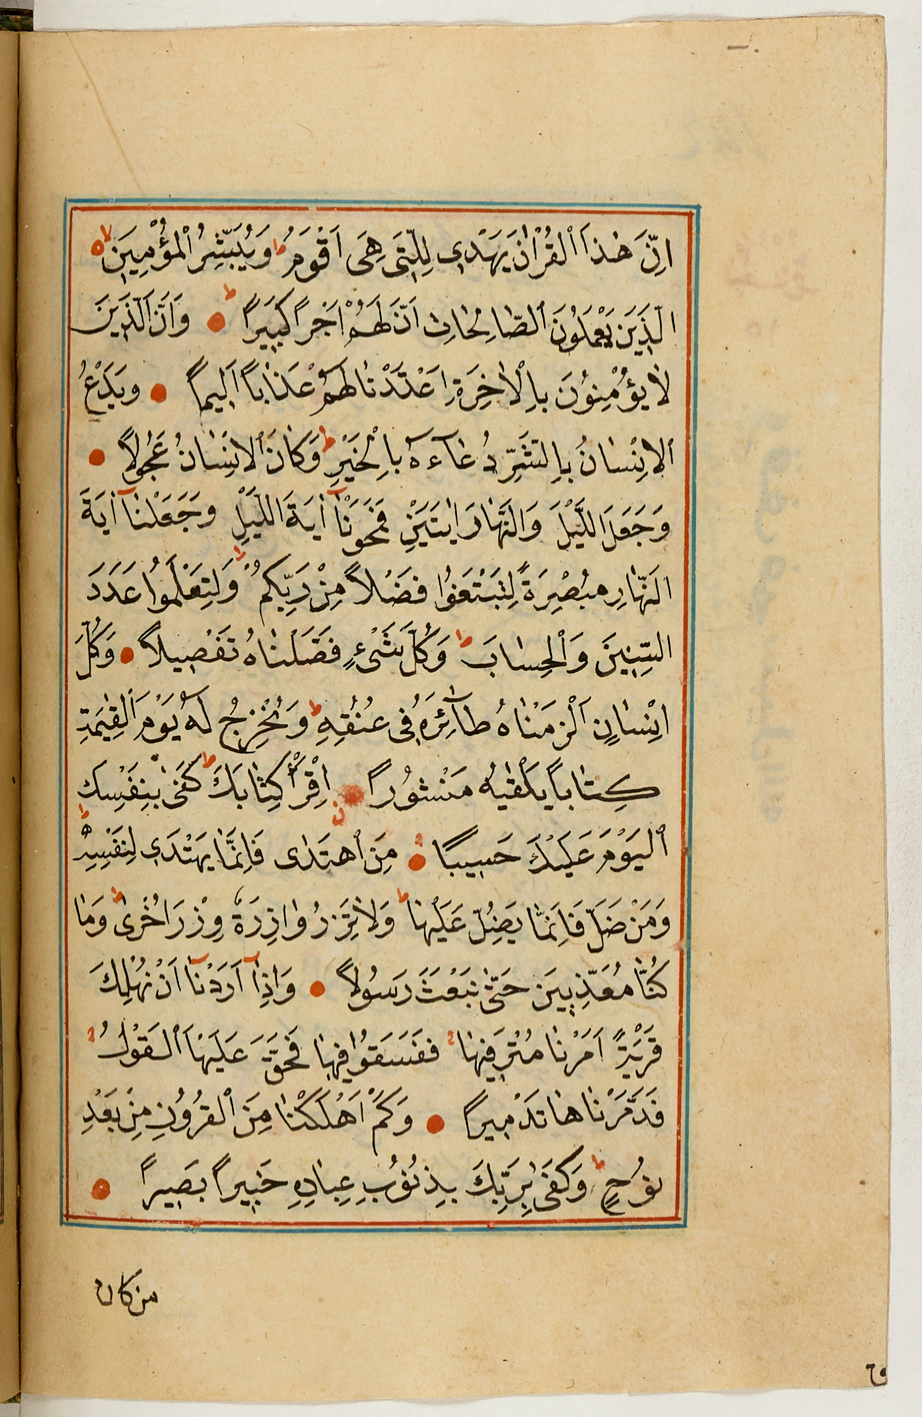 اِنَّ هٰذَا ٱلْقُرْاٰنَ يَهْدٖى لِلَّتٖى هِىَ اَقْوَمُ ط وَيُبَشِّرُ ٱلْمُؤْمِنٖينَ لا
الَّذٖينَ يَعْمَلُونَ ٱلصَّالِحَاتِ اَنَّ لَهُمْ اَجْرًا كَبٖيرًا ط وَاَنَّ ٱلَّذٖينَ
لَا يُؤْمِنُونَ بِاٱلْاٰخِرَةِ اَعْتَدْنَا لَهُمْ عَذَابًا اَلٖيمًا وَيَدْعُ
ٱلْاِنْسَانُ بِالشَّرِّ دُعَآءَهُ بِاٱلْخَيْرِ ط وَكَانَ ٱلْاِنْسَانُ عَجُولًا
وَجَعَلْنَا ٱللَّيْلَ وَالنَّهَارَ اٰيَتَيْنِ فَمَحَوْنَآ اٰيَةَ اللَّيْلِ وَجَعَلْنَآ اٰيَةَ
النَّهَارِ مُبْصِرَةً لِتَبْتَغُوا فَضْلًا مِنْ رَبِّكُمْ وَلِتَعْلَمُوا عَدَدَ
السِّنٖينَ وَالْحِسَابَ ط وَكُلَّ شَىْءٍ فَصَّلْنَاهُ تَفْصٖيلًا وَكُلَّ
اِنْسَانٍ اَلْزَمْنَاهُ طَآئِرَهُ فٖى عُنُقِهٖ ط وَنُخْرِجُ لَهُ يَوْمَ ٱلْقِيٰمَةِ
كِتَابًا يَلْقٰيهُ مَنْشُورًا اِقْرَأْ كِتَابَكَ ط كَفٰى بِنَفْسِكَ
ٱلْيَوْمَ عَلَيْكَ حَسٖيبًا مَنِ ٱهْتَدٰى فَاِنَّمَا يَهْتَدٖى لِنَفْسِهٖ ط
وَمَنْ ضَلَّ فَاِنَّمَا يَضِلُّ عَلَيْهَا ط وَلَا تَزِرُ وَازِرَةٌ وِزْرَ اُخْرٰى ط وَمَا
كُنَّا مُعَذِّبٖينَ حَتّٰى نَبْعَثَ رَسُولًا وَاِذَآ اَرَدْنَآ اَنْ نُهْلِكَ
قَرْيَةً اَمَرْنَا مُتْرَفٖيهَا فَفَسَقُوا فٖيهَا فَحَقَّ عَلَيْهَا ٱلْقَوْلُ
فَدَمَّرْنَاهَا تَدْمٖيرًا وَكَمْ اَهْلَكْنَا مِنَ ٱلْقُرُونِ مِنْ بَعْدِ
نُوحٍ ط وَكَفٰى بِرَبِّكَ بِذُنُوبِ عِبَادِهٖ خَبٖيرًا بَصٖيرًا
من كان